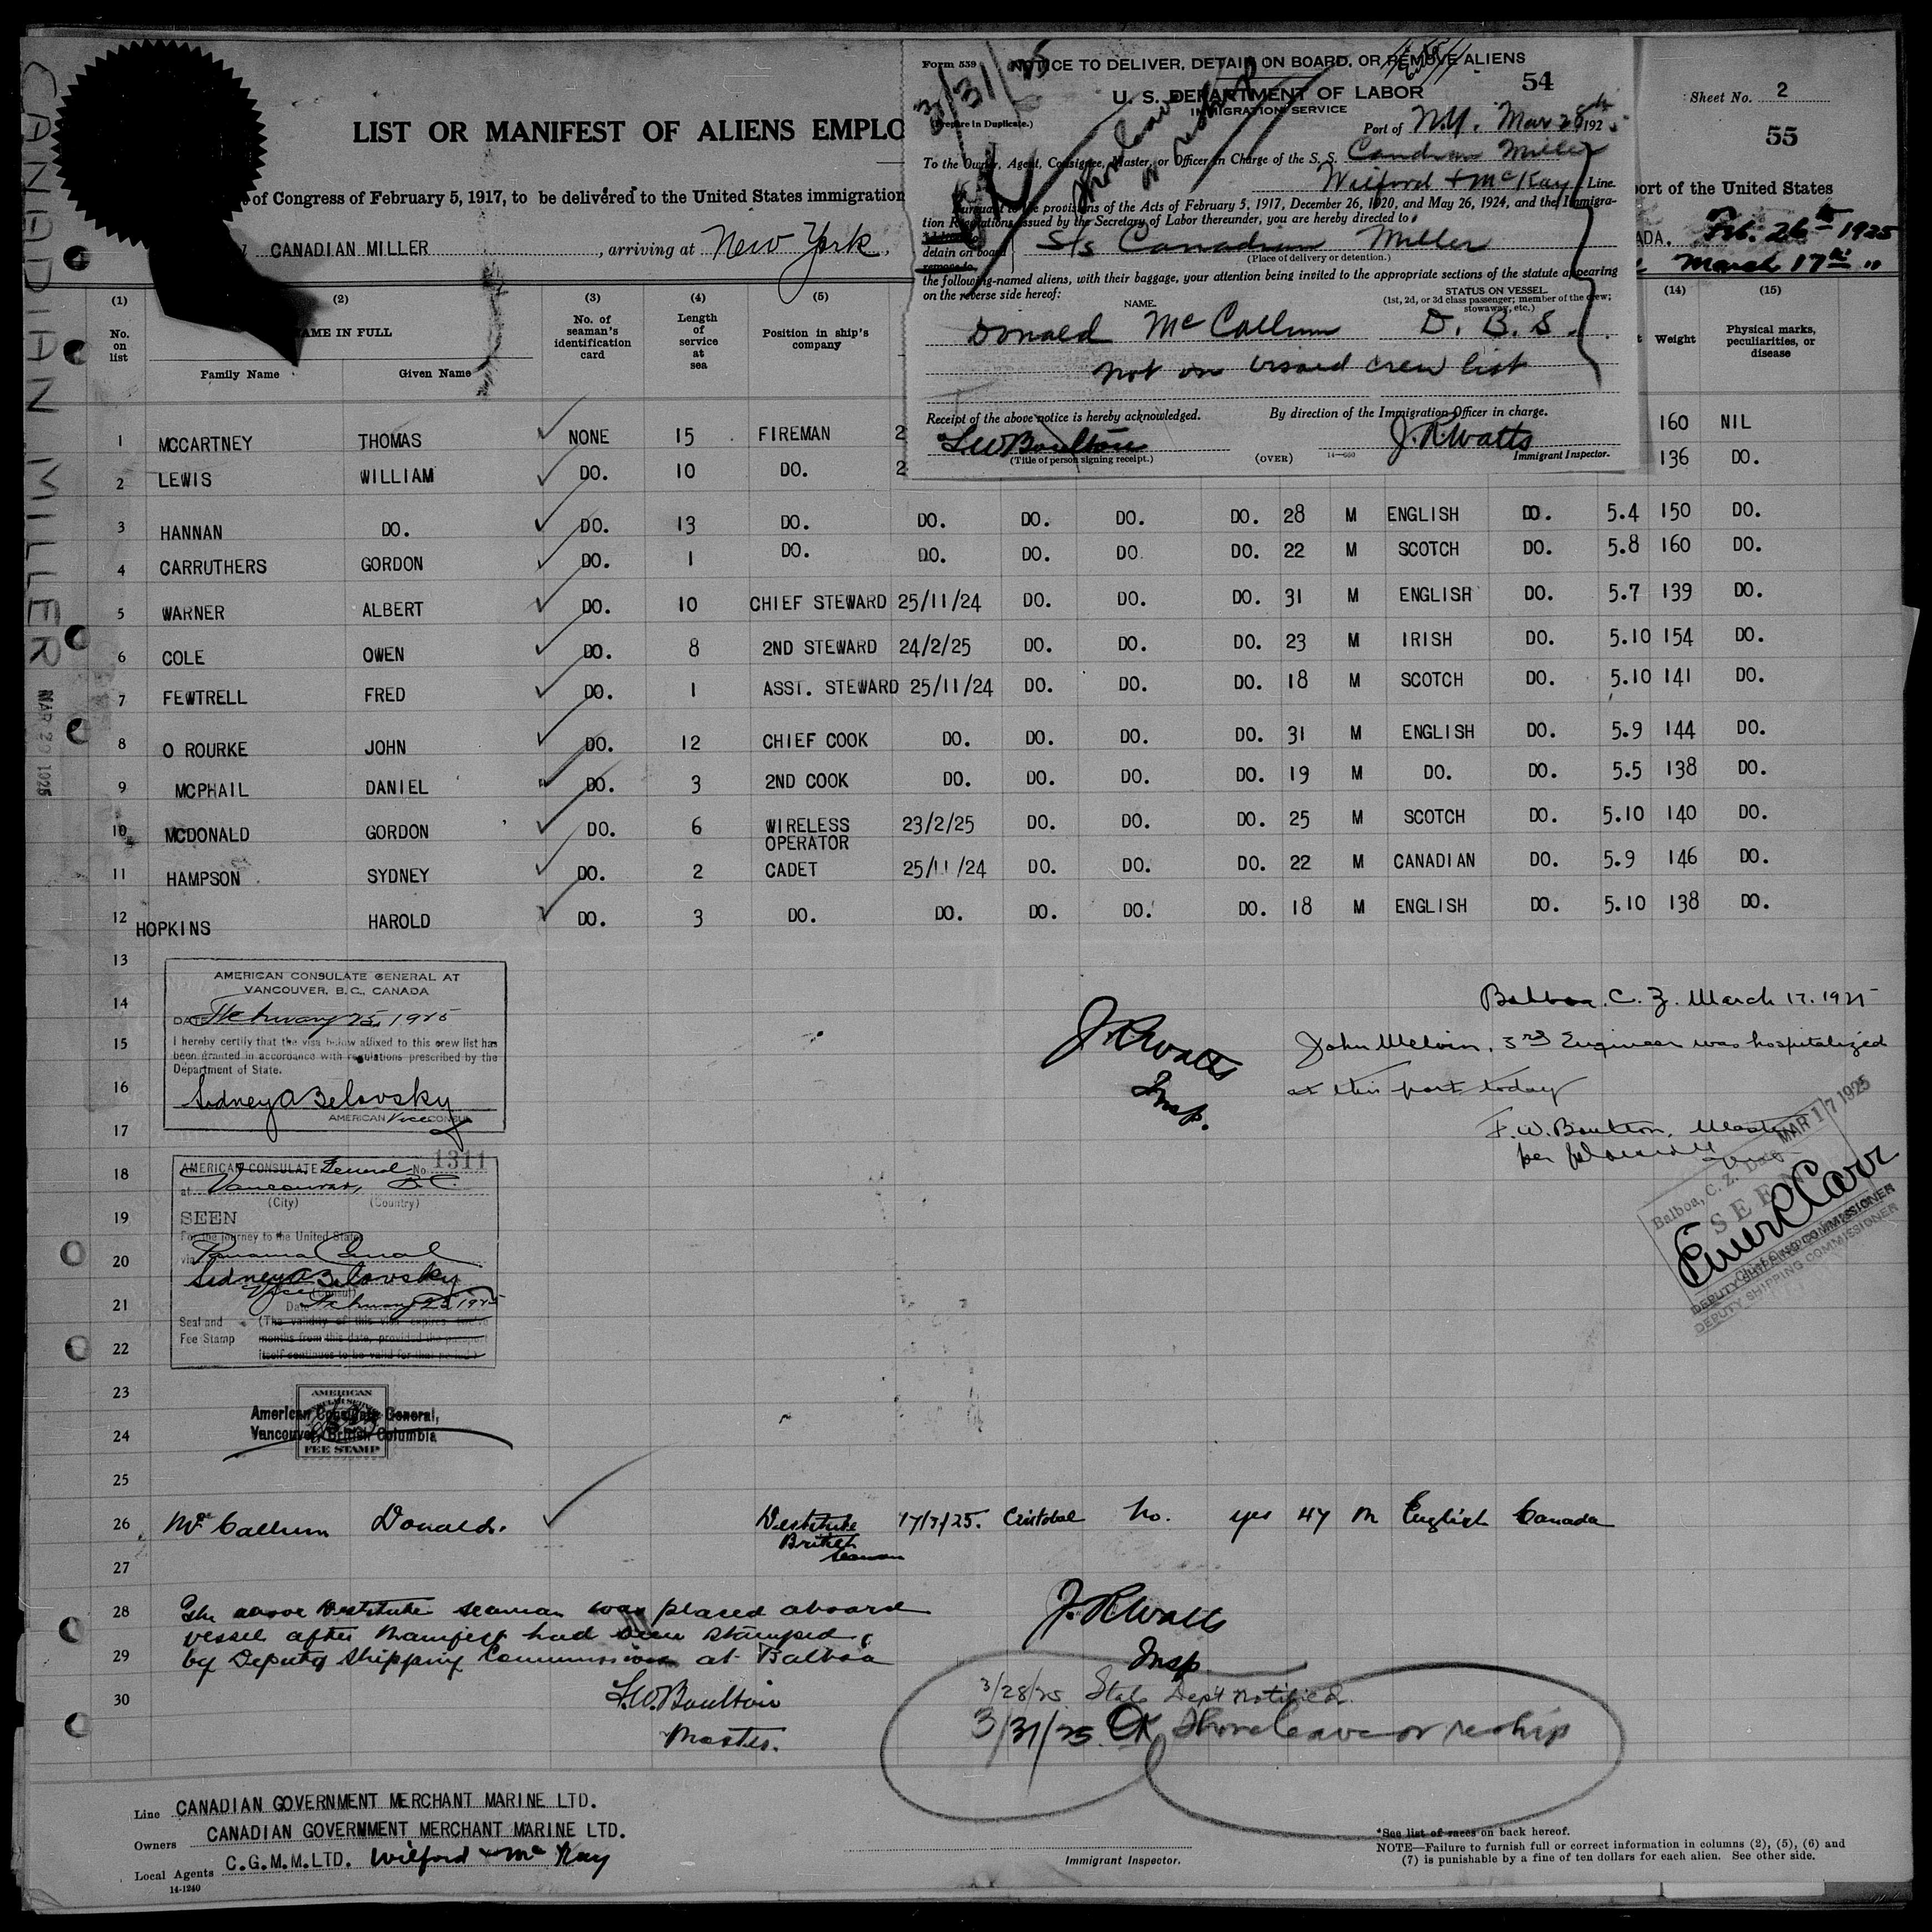 CANADIAN MILLER
MAR 29 1925
LIST OR MANIFEST OF ALIENS EMPLO
of Congress of February 5, 1917, to be delivered to the United States immigration
CANADIAN MILLER , arriving at New York,
Form 559
NOTICE TO DELIVER, DETAIN ON BOARD, OR REMOVE ALIENS
54
U. S. DEPARTMENT OF LABOR
IMMIGRATION SERVICE
(Prepare in Duplicate.)
3/31/25
OK
Shore leave
or reship
Port of N.Y. Mar 28th 1925
To the Owner, Agent, Consignee, Master, or Officer in Charge of the S. S. Canadian Miller
Wilford + McKay Line.
Pursuant to the provisions of the Acts of February 5, 1917, December 26, 1920, and May 26, 1924, and the Immigra-
tion Regulations issued by the Secretary of Labor thereunder, you are hereby directed to
detain on board S/s Canadian Miller
remove to
(Place of delivery or detention.)
the following-named aliens, with their baggage, your attention being invited to the appropriate sections of the statute appearing
on the reverse side hereof:
NAME. STATUS ON VESSEL.
(1st, 2d, or 3d class passenger; member of the crew;
stowaway, etc.)
Donald McCallum D. B. S.
not on visaed crew list
Receipt of the above notice is hereby acknowledged. By direction of the Immigration Officer in charge.
F.W. Boulton J.R. Watts
(Title of person signing receipt.) (OVER) 14—660 Immigrant Inspector.
Sheet No. 2
55
port of the United States
ADA. Feb. 26th 1925
March 17th "
(1) (2) (3) (4) (5) (14) (15)
No. on list
NAME IN FULL
Family Name Given Name
No. of seaman's identification card
Length of service at sea
Position in ship's company
Weight
Physical marks, peculiarities, or disease
1 MCCARTNEY THOMAS NONE 15 FIREMAN 2 160 NIL
2 LEWIS WILLIAM DO. 10 DO. 2 136 DO.
3 HANNAN DO. DO. 13 DO. DO. DO. DO. DO. 28 M ENGLISH DO. 5.4 150 DO.
4 CARRUTHERS GORDON DO. 1 DO. DO. DO. DO. DO. 22 M SCOTCH DO. 5.8 160 DO.
5 WARNER ALBERT DO. 10 CHIEF STEWARD 25/11/24 DO. DO. DO. 31 M ENGLISH DO. 5.7 139 DO.
6 COLE OWEN DO. 8 2ND STEWARD 24/2/25 DO. DO. DO. 23 M IRISH DO. 5.10 154 DO.
7 FEWTRELL FRED DO. 1 ASST. STEWARD 25/11/24 DO. DO. DO. 18 M SCOTCH DO. 5.10 141 DO.
8 O ROURKE JOHN DO. 12 CHIEF COOK DO. DO. DO. DO. 31 M ENGLISH DO. 5.9 144 DO.
9 MCPHAIL DANIEL DO. 3 2ND COOK DO. DO. DO. DO. 19 M DO. DO. 5.5 138 DO.
10 MCDONALD GORDON DO. 6 WIRELESS OPERATOR 23/2/25 DO. DO. DO. 25 M SCOTCH DO. 5.10 140 DO.
11 HAMPSON SYDNEY DO. 2 CADET 25/11/24 DO. DO. DO. 22 M CANADIAN DO. 5.9 146 DO.
12 HOPKINS HAROLD DO. 3 DO. DO. DO. DO. DO. 18 M ENGLISH DO. 5.10 138 DO.
13
14
15
16
17
18
19
20
21
22
23
24
25
AMERICAN CONSULATE GENERAL AT
VANCOUVER, B.C., CANADA
DATE February 25, 1925
I hereby certify that the visa below affixed to this crew list has
been granted in accordance with regulations prescribed by the
Department of State.
Sidney A Belovsky
AMERICAN Vice CONSUL
AMERICAN CONSULATE General No. 1311
at Vancouver, B.C.
(City) (Country)
SEEN
For the journey to the United States
via Panama Canal
Sidney A Belovsky
Vice (Consul)
Date February 25 1925
Seal and (The validity of this visa expires twelve
Fee Stamp months from this date, provided the passport
itself continues to be valid for that period.)
AMERICAN
FEE STAMP
American Consulate General,
Vancouver, British Columbia
J.R. Watts
Insp.
Balboa, C. Z. March 17. 1925
John Melvin, 3rd Engineer was hospitalized
at this port today
F.W. Boulton, Master
per
Balboa, C. Z. Date MAR 17 1925
SEEN
DEPUTY SHIPPING COMMISSIONER
DEPUTY SHIPPING COMMISSIONER
26 McCallum Donald. Destitute British Seaman 17/3/25. Cristobal No. yes 47 M English Canada
27
28 The above Destitute seaman was placed aboard
vessel after Manifest had been stamped
29 by Deputy Shipping Commissioner at Balboa
30 F.W. Boulton
Master.
J. R. Watts
Insp
3/28/25 State Dept notified.
3/31/25 OK Shore leave or reship
Line CANADIAN GOVERNMENT MERCHANT MARINE LTD.
Owners CANADIAN GOVERNMENT MERCHANT MARINE LTD.
Local Agents C.G.M.M.LTD. Wilford + McKay
14-1240
Immigrant Inspector.
*See list of races on back hereof.
NOTE—Failure to furnish full or correct information in columns (2), (5), (6) and
(7) is punishable by a fine of ten dollars for each alien. See other side.